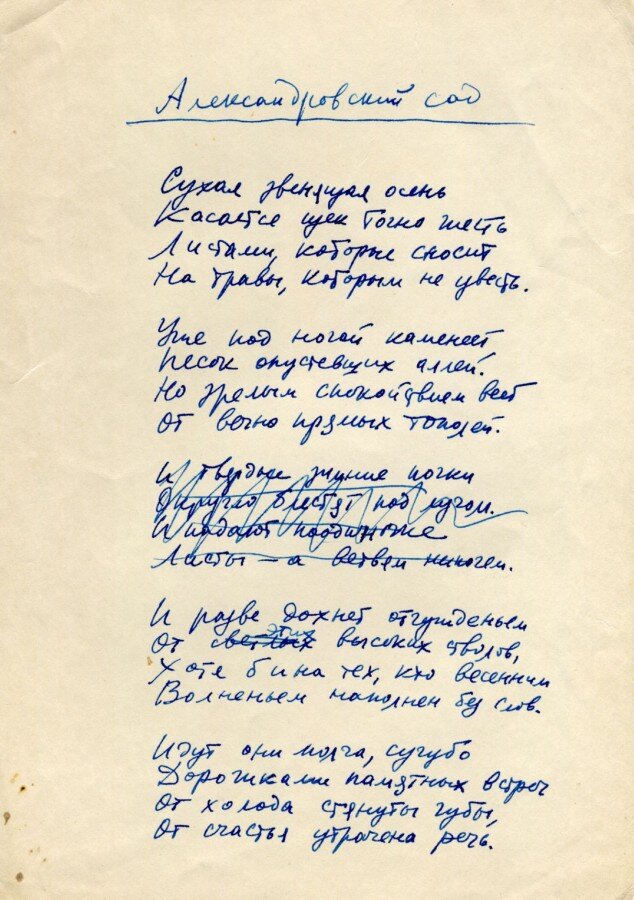 Александровский сад
Сухая звенящая осень
Касается щек точно жесть
Листами, которые сносит
На травы, которым не цвесть.
Уже под ногой каменеет
Песок опустевших аллей.
Но зрелым спокойствием веет
От вечно прямых тополей.
И твердые зимние почки
Округло блестят под лучом.
И падают
Листы — а ветвям нипочем.
И разве дохнет отчужденьем
этих
От светлых высоких стволов,
Хотя б и на тех, кто весенним
Волненьем наполнен без слов.
Идут они молча, сугубо
Дорожками памятных встреч
От холода стянуты губы,
От счастья утрачена речь.